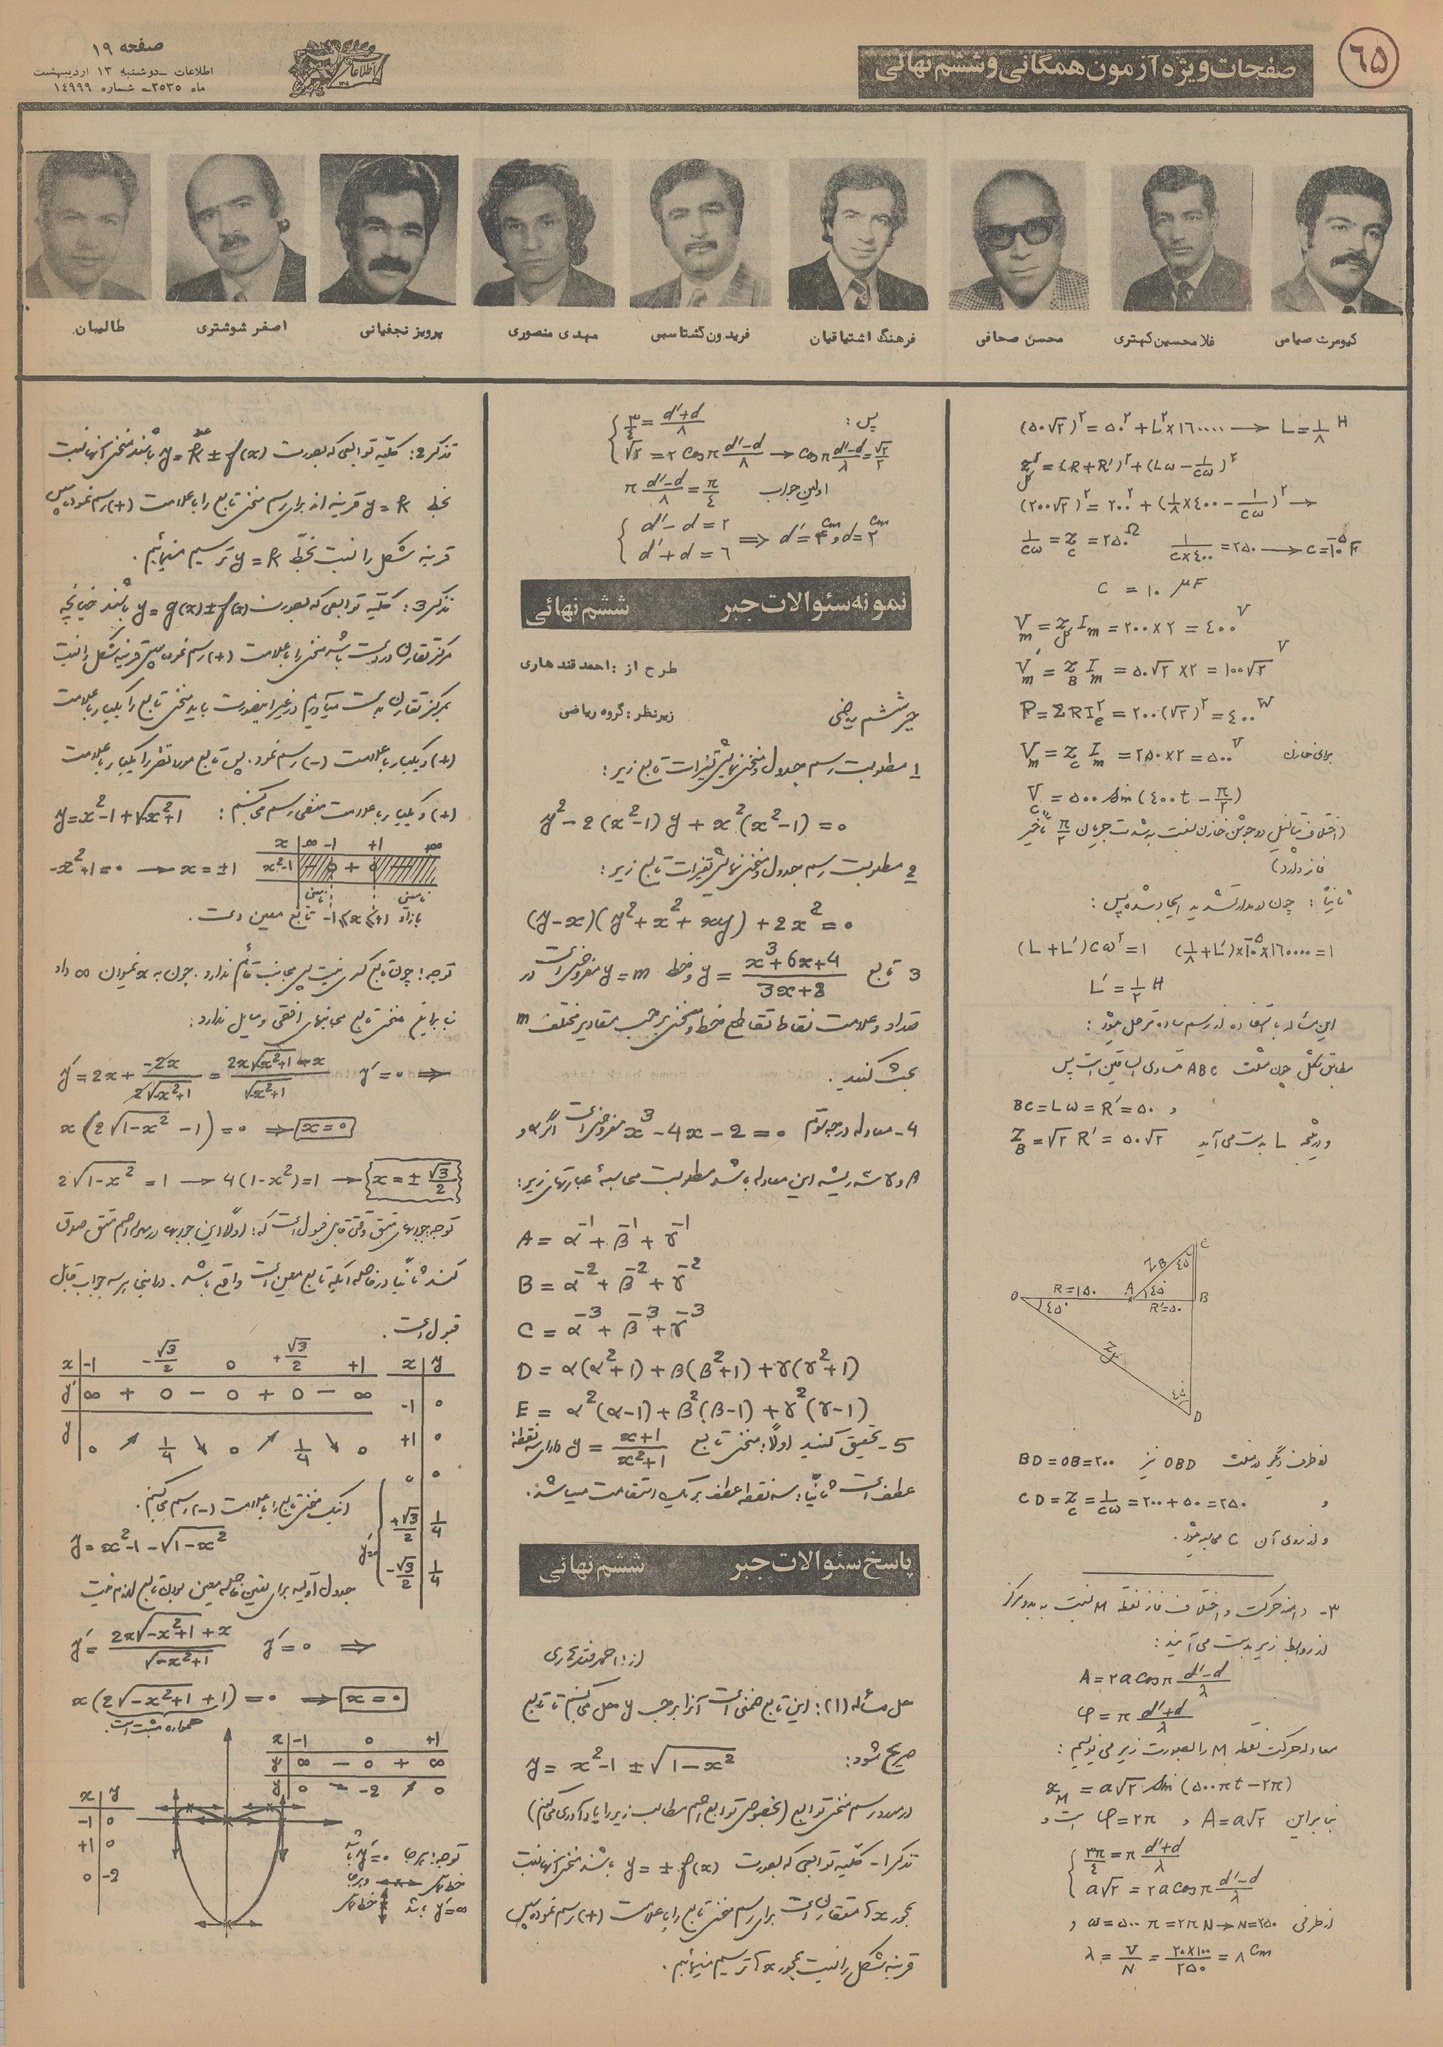 ۶۵
صفحات ویژه آزمون همگانی و ششم نهائی
صفحه ۱۹
اطلاعات ـ دوشنبه ۱۳ اردیبهشت
ماه ۲۵۳۵ـ شماره ۱۴۹۹۹
اطلاعات
کیومرث صیامی
غلامحسین کهتری
محسن صحافی
فرهنگ اشتیاقیان
فریدون گشتاسبی
مهدی منصوری
پرویز نجفیانی
اصغر شوشتری
طالبیان
(۵۰√۲)^۲ = ۵۰^۲ + L^۲ × ۱۶۰۰۰۰ → L = ۱/۸ H
Z^۲ کل = (R+R')^۲ + (Lω - ۱/Cω)^۲
(۲۰۰√۲)^۲ = ۲۰۰^۲ + (۱/۸ × ۴۰۰ - ۱/Cω)^۲ →
۱/Cω = Z_C = ۲۵۰ Ω ۱/C×۴۰۰ = ۲۵۰ → C = ۱۰^-۵ F
C = ۱۰ μF
V_m = Z کل I_m = ۲۰۰ × ۲ = ۴۰۰ V
V'_m = Z_B I_m = ۵۰√۲ × ۲ = ۱۰۰√۲ V
P = ΣRI_e^۲ = ۲۰۰(√۲)^۲ = ۴۰۰ W
برای خازن V_m = Z_C I_m = ۲۵۰ × ۲ = ۵۰۰ V
V_C = ۵۰۰ sin(۴۰۰t - π/۲)
(اختلاف پتانسیل دو جوشن خازن نسبت به شدت جریان π/۲ تأخیر
فاز دارد)
ثانیاً: چون در مدار تشدید ایجاد شده پس:
(L+L')Cω^۲ = ۱ (۱/۸+L')×۱۰^-۵×۱۶۰۰۰۰ = ۱
L' = ۱/۲ H
این مسأله با استفاده از رسم ساده تر حل میشود:
مطابق شکل چون مثلث ABC متساوی الساقین است پس
BC = Lω = R' = ۵۰ و
Z_B = √۲ R' = ۵۰√۲ و در نتیجه L بدست می آید
C
Z_B ۴۵
O R=۱۵۰ A ۴۵° B
۴۵° R'=۵۰
Z کل
۴۵
D
از طرف دیگر در مثلث OBD نیز BD = OB = ۲۰۰
و CD = Z_C = ۱/Cω = ۲۰۰ + ۵۰ = ۲۵۰
و از روی آن C می شود.
۳- دامنه حرکت و اختلاف فاز نقطه M نسبت به دو مرکز
از روابط زیر بدست می آیند:
A = ۲a cos π (d'-d)/λ
φ = π (d'+d)/λ
معادله حرکت نقطه M را بصورت زیر می نویسیم:
x_M = a√۲ sin(۵۰۰πt - ۲π)
بنابراین A = a√۲ و φ = ۲π است و
۳π/۴ = π (d'+d)/λ
a√۲ = ۲a cos π (d'-d)/λ
از طرفی ω = ۵۰۰π = ۲πN → N = ۲۵۰ و
λ = V/N = ۲۰×۱۰۰/۲۵۰ = ۸ Cm
پس:
۳/۴ = (d'+d)/۸
√۲ = ۲ cos π (d'-d)/۸ → cos π (d'-d)/λ = √۲/۲
اولین جواب π (d'-d)/۸ = π/۴
d'-d = ۲
d'+d = ۶
⇒ d' = ۴ cm و d = ۲ cm
نمونه سئوالات جبر ششم نهائی
طرح از: احمد قندهاری
زیر نظر: گروه ریاضی
جبر ششم ریاضی
1 مطلوبست رسم جدول و منحنی نمایش تغییرات تابع زیر:
y^2 - 2(x^2-1)y + x^2(x^2-1) = 0
2 مطلوبست رسم جدول و منحنی نمایش تغییرات تابع زیر:
(y-x)(y^2+x^2+xy) + 2x^2 = 0
3 تابع y = (x^3+6x+4)/(3x+8) و خط y=m مفروض است در
تعداد و علامت نقاط تقاطع خط و منحنی بر حسب مقادیر مختلف m
بحث کنید.
4- معادله درجه سوم x^3-4x-2=0 مفروض است اگر α و
β و γ سه ریشه این معادله باشد مطلوبست محاسبهٔ عبارتهای زیر:
A = α^-1 + β^-1 + γ^-1
B = α^-2 + β^-2 + γ^-2
C = α^-3 + β^-3 + γ^-3
D = α(α^2+1) + β(β^2+1) + γ(γ^2+1)
E = α^2(α-1) + β^2(β-1) + γ^2(γ-1)
5- تحقیق کنید اولاً: منحنی تابع y = (x+1)/(x^2+1) دارای سه نقطهٔ
عطف است ثانیاً: سه نقطه عطف بر یک استقامت میباشد.
پاسخ سئوالات جبر ششم نهائی
از: احمد قندهاری
حل مسأله (1): این تابع ضمنی است آنرا بر حسب y حل می کنیم تا تابع
صریح شود: y = x^2-1 ± √(1-x^2)
در مورد رسم منحنی توابع (بخصوص توابع اصم مطالب زیر را یادآوری می کنیم)
تذکر 1- کلیه توابعی که بصورت y = ±f(x) باشند منحنی آنها نسبت
بمحور x ها متقارن است برای رسم منحنی تابع را با علامت (+) رسم نموده سپس
قرینه شکل را نسبت بمحور x ها ترسیم مینمائیم.
تذکر 2: کلیه توابعی که بصورت y = k ± f(x) باشند منحنی آنها نسبت
بخط y = k قرینه اند برای رسم منحنی تابع را با علامت (+) رسم نموده سپس
قرینه شکل را نسبت بخط y = k ترسیم مینمائیم.
تذکر 3: کلیه توابعی که بصورت y = g(x) ± f(x) باشند چنانچه
مرکز تقارن در دست باشد منحنی را با علامت (+) رسم نموده سپس قرینه شکل را نسبت
بمرکز تقارن بدست میآوریم در غیر اینصورت باید منحنی تابع را یکبار با علامت
(+) و یکبار با علامت (-) رسم نمود. پس تابع مورد نظر را یکبار با علامت
(+) و یکبار با علامت منفی رسم می کنیم: y = x^2-1+√(-x^2+1)
-x^2+1=0 → x=±1
x -∞ -1 +1 +∞
x^2-1 0 + 0
نامعین نامعین
بازاء -1≤x≤+1 تابع معین است.
توجه: چون تابع کسری نیست پس مجانب قائم ندارد. چون به x نمیتوان ∞ داد
بنابراین منحنی تابع مجانبهای افقی و مایل ندارد:
y' = 2x + -2x/2√(-x^2+1) = (2x√(-x^2+1) - x)/√(-x^2+1) y'=0 ⇒
x(2√(1-x^2) - 1) = 0 ⇒ x=0
2√(1-x^2) = 1 → 4(1-x^2)=1 → x=±√3/2
توجه جوابهای مشتق وقتی قابل قبول است که: اولاً این جوابها در معادله اصم مشتق صدق
کنند ثانیاً در فاصله ایکه تابع معین است واقع باشد. در اینجا هر سه جواب قابل
قبول است.
x -1 -√3/2 0 +√3/2 +1
y' ∞ + 0 - 0 + 0 - ∞
y 0 ↗ 1/4 ↘ 0 ↗ 1/4 ↘ 0
x y
-1 0
+1 0
0 0
+√3/2 1/4
-√3/2 1/4
y'=0
اینک منحنی تابع را با علامت (-) رسم می کنیم.
y = x^2-1-√(1-x^2)
جدول اولیه برای تعیین فاصله معین بودن تابع لازم نیست
y' = (2x√(-x^2+1) + x)/√(-x^2+1) y'=0 ⇒
x(2√(-x^2+1) + 1) = 0 → x=0
همواره مثبت است
x -1 0 +1
y' ∞ - 0 + ∞
y 0 ↘ -2 ↗ 0
x y
-1 0
+1 0
0 -2
توجه: هر جا y'=0 باشد
خط مماس ↔ و هر جا
y'=∞ باشد خط مماس ↕